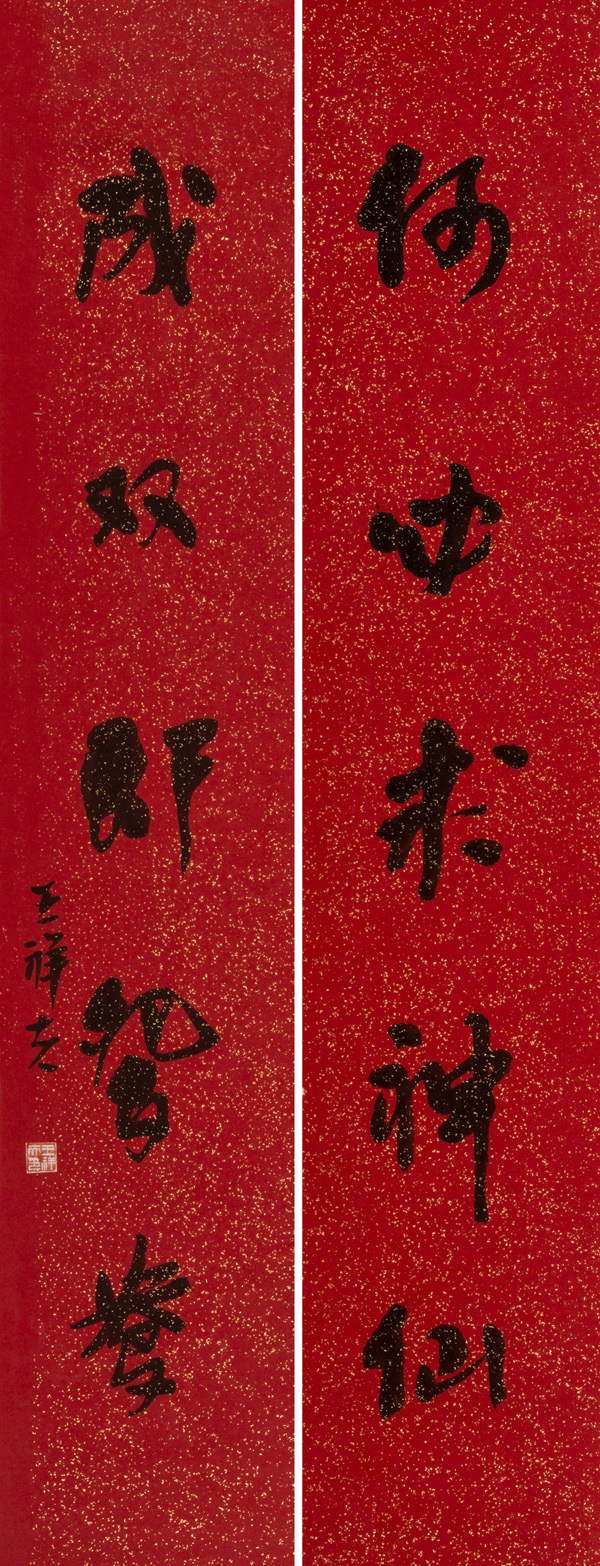 何必求神仙
成双即鸳鸯
王祥夫
王祥夫印